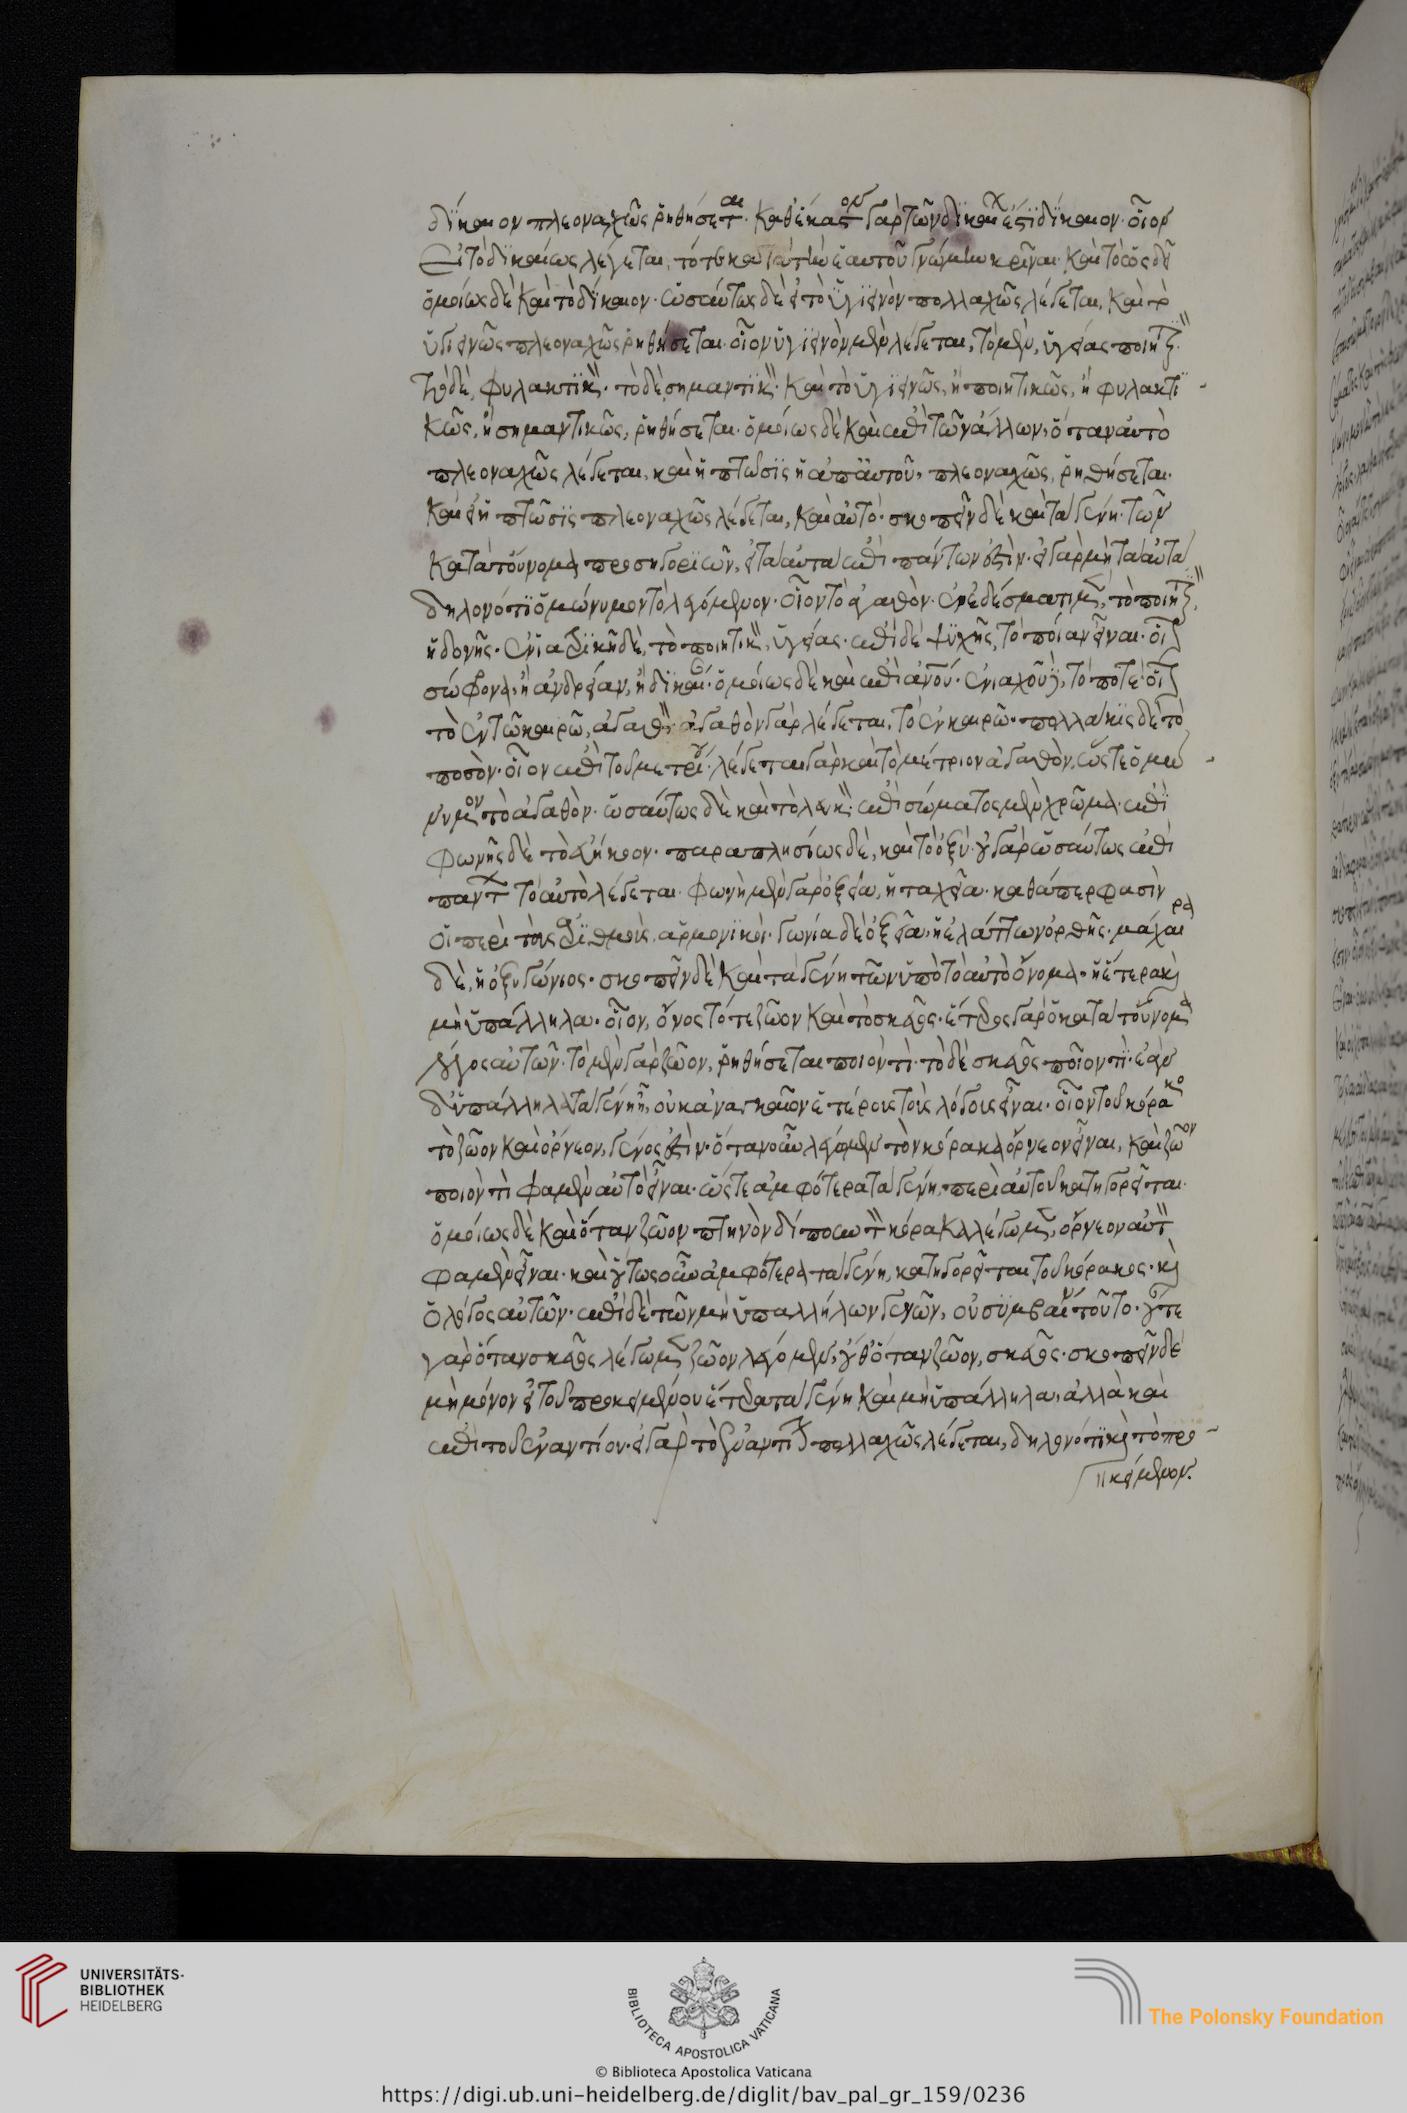 δίκαιον πλεοναχῶς ῥηθήσεται· καθ' ἕκαστον γὰρ τῶν δικαίων ἐστὶ δίκαιον· οἷον
εἰ τὸ δικαίως λέγεται, τό τε κατὰ τὴν ἑαυτοῦ γνώμην κρῖναι καὶ τὸ ὡς δεῖ
ὁμοίως δὲ καὶ τὸ δίκαιον· ὡσαύτως δὲ εἰ τὸ ὑγιεινὸν πολλαχῶς λέγεται, καὶ τὸ
ὑγιεινῶς πλεοναχῶς ῥηθήσεται· οἷον ὑγιεινὸν μὲν λέγεται, τὸ μὲν, ὑγείας ποιητικ·
τὸ δὲ, φυλακτικ· τὸ δὲ σημαντικ· καὶ τὸ ὑγιεινῶς, ἢ ποιητικῶς, ἢ φυλακτι
κῶς, ἢ σημαντικῶς, ῥηθήσεται· ὁμοίως δὲ καὶ ἐπὶ τῶν ἄλλων, ὅταν αὐτὸ
πλεοναχῶς λέγεται, καὶ ἡ πτῶσις ἡ ἀπ' αὐτοῦ, πλεοναχῶς, ῥηθήσεται·
καὶ εἰ ἡ πτῶσις πλεοναχῶς λέγεται, καὶ αὐτό· σκοπεῖν δὲ καὶ τὰ γένη τῶν
κατὰ τοὔνομα προσηγοριῶν, εἰ ταὐτὰ ἐπὶ πάντων ἐστὶν· εἰ γὰρ μὴ ταὐτὰ
δηλονότι ὁμώνυμον τὸ λεγόμενον· οἷον τὸ ἀγαθὸν· ἐν ἐδέσματι μὲν, τὸ ποιητικ,
ἡδονῆς· ἐν ἰατρικῆ δὲ, τὸ ποιητικ, ὑγείας· ἐπὶ δὲ ψυχῆς, τὸ ποίαν εἶναι· οἷον
σώφρονα, ἢ ἀνδρείαν, ἢ δικαίαν· ὁμοίως δὲ καὶ ἐπὶ ἀνου· ἐνιαχοῦ δὲ, τὸ ποτέ· οἷον
τὸ ἐν τῶ καιρῶ, ἀγαθ· ἀγαθὸν γὰρ λέγεται, τὸ ἐν καιρῶ· πολλάκις δὲ τὸ
ποσὸν· οἷον ἐπὶ τοῦ μετρίου· λέγεται γὰρ καὶ τὸ μέτριον ἀγαθὸν, ὥστε ὁμώ
νυμον τὸ ἀγαθὸν· ὡσαύτως δὲ καὶ τὸ λευκ· ἐπὶ σώματος μὲν χρῶμα· ἐπὶ
φωνῆς δὲ τὸ εὐήκοον· παραπλησίως δὲ, καὶ τὸ ὀξύ· οὐ γὰρ ὡσαύτως ἐπὶ
πάντων τὸ αὐτὸ λέγεται· φωνὴ μὲν γὰρ ὀξεῖα, ἡ ταχεῖα· καθάπερ φασὶν
οἱ περὶ τοὺς ἀριθμοὺς ἁρμονικοί· γωνία δὲ ὀξεῖα, ἡ ἐλάττων ὀρθῆς· μάχαιρα
δὲ, ἡ ὀξυγώνιος· σκοπεῖν δὲ καὶ τὰ γένη τῶν ὑπὸ τὸ αὐτὸ ὄνομα· ἢ ἕτερα καὶ
μὴ ὑπάλληλα· οἷον, ὄνος τό τε ζῶον καὶ τὸ σκεῦος· ἕτερος γὰρ ὁ κατὰ τοὔνομα
λόγος αὐτῶν· τὸ μὲν γὰρ ζῶον, ῥηθήσεται ποιόν τι· τὸ δὲ σκεῦος ποῖόν τι· ἐὰν
δ' ὑπάλληλα τὰ γένη ἦ, οὐκ ἀναγκαῖον ἑτέρους τοὺς λόγους εἶναι· οἷον τοῦ κόρακος
τὸ ζῶον καὶ ὄρνεον, γένος ἐστὶν· ὅταν οὖν λέγωμεν τὸν κόρακα ὄρνεον εἶναι, καὶ ζῶον
ποιόν τι φαμὲν αὐτὸ εἶναι· ὥστε ἀμφότερα τὰ γένη, περὶ αὐτοῦ κατηγορεῖται·
ὁμοίως δὲ καὶ ὅταν ζῶον πτηνὸν δίπουν τὸν κόρακα λέγωμεν, ὄρνεον αὐτ
φαμὲν εἶναι· καὶ οὕτως οὖν ἀμφότερα τὰ γένη, κατηγορεῖται τοῦ κόρακος· καὶ
ὁ λόγος αὐτῶν· ἐπὶ δὲ τῶν μὴ ὑπαλλήλων γενῶν, οὐ συμβαίνει τοῦτο· οὔτε
γὰρ ὅταν σκεῦος λέγωμεν ζῶον λέγομεν, οὔθ' ὅταν ζῶον, σκεῦος· σκοπεῖν δὲ
μὴ μόνον εἰ τοῦ προκειμένου ἕτερα τὰ γένη καὶ μὴ ὑπάλληλα, ἀλλὰ καὶ
ἐπὶ τοῦ ἐναντίου· εἰ γὰρ τὸ ἐναντίον πολλαχῶς λέγεται, δηλονότι καὶ τὸ προ
κείμενον.
UNIVERSITÄTS-
BIBLIOTHEK
HEIDELBERG
BIBLIOTECA APOSTOLICA VATICANA
The Polonsky Foundation
© Biblioteca Apostolica Vaticana
https://digi.ub.uni-heidelberg.de/diglit/bav_pal_gr_159/0236